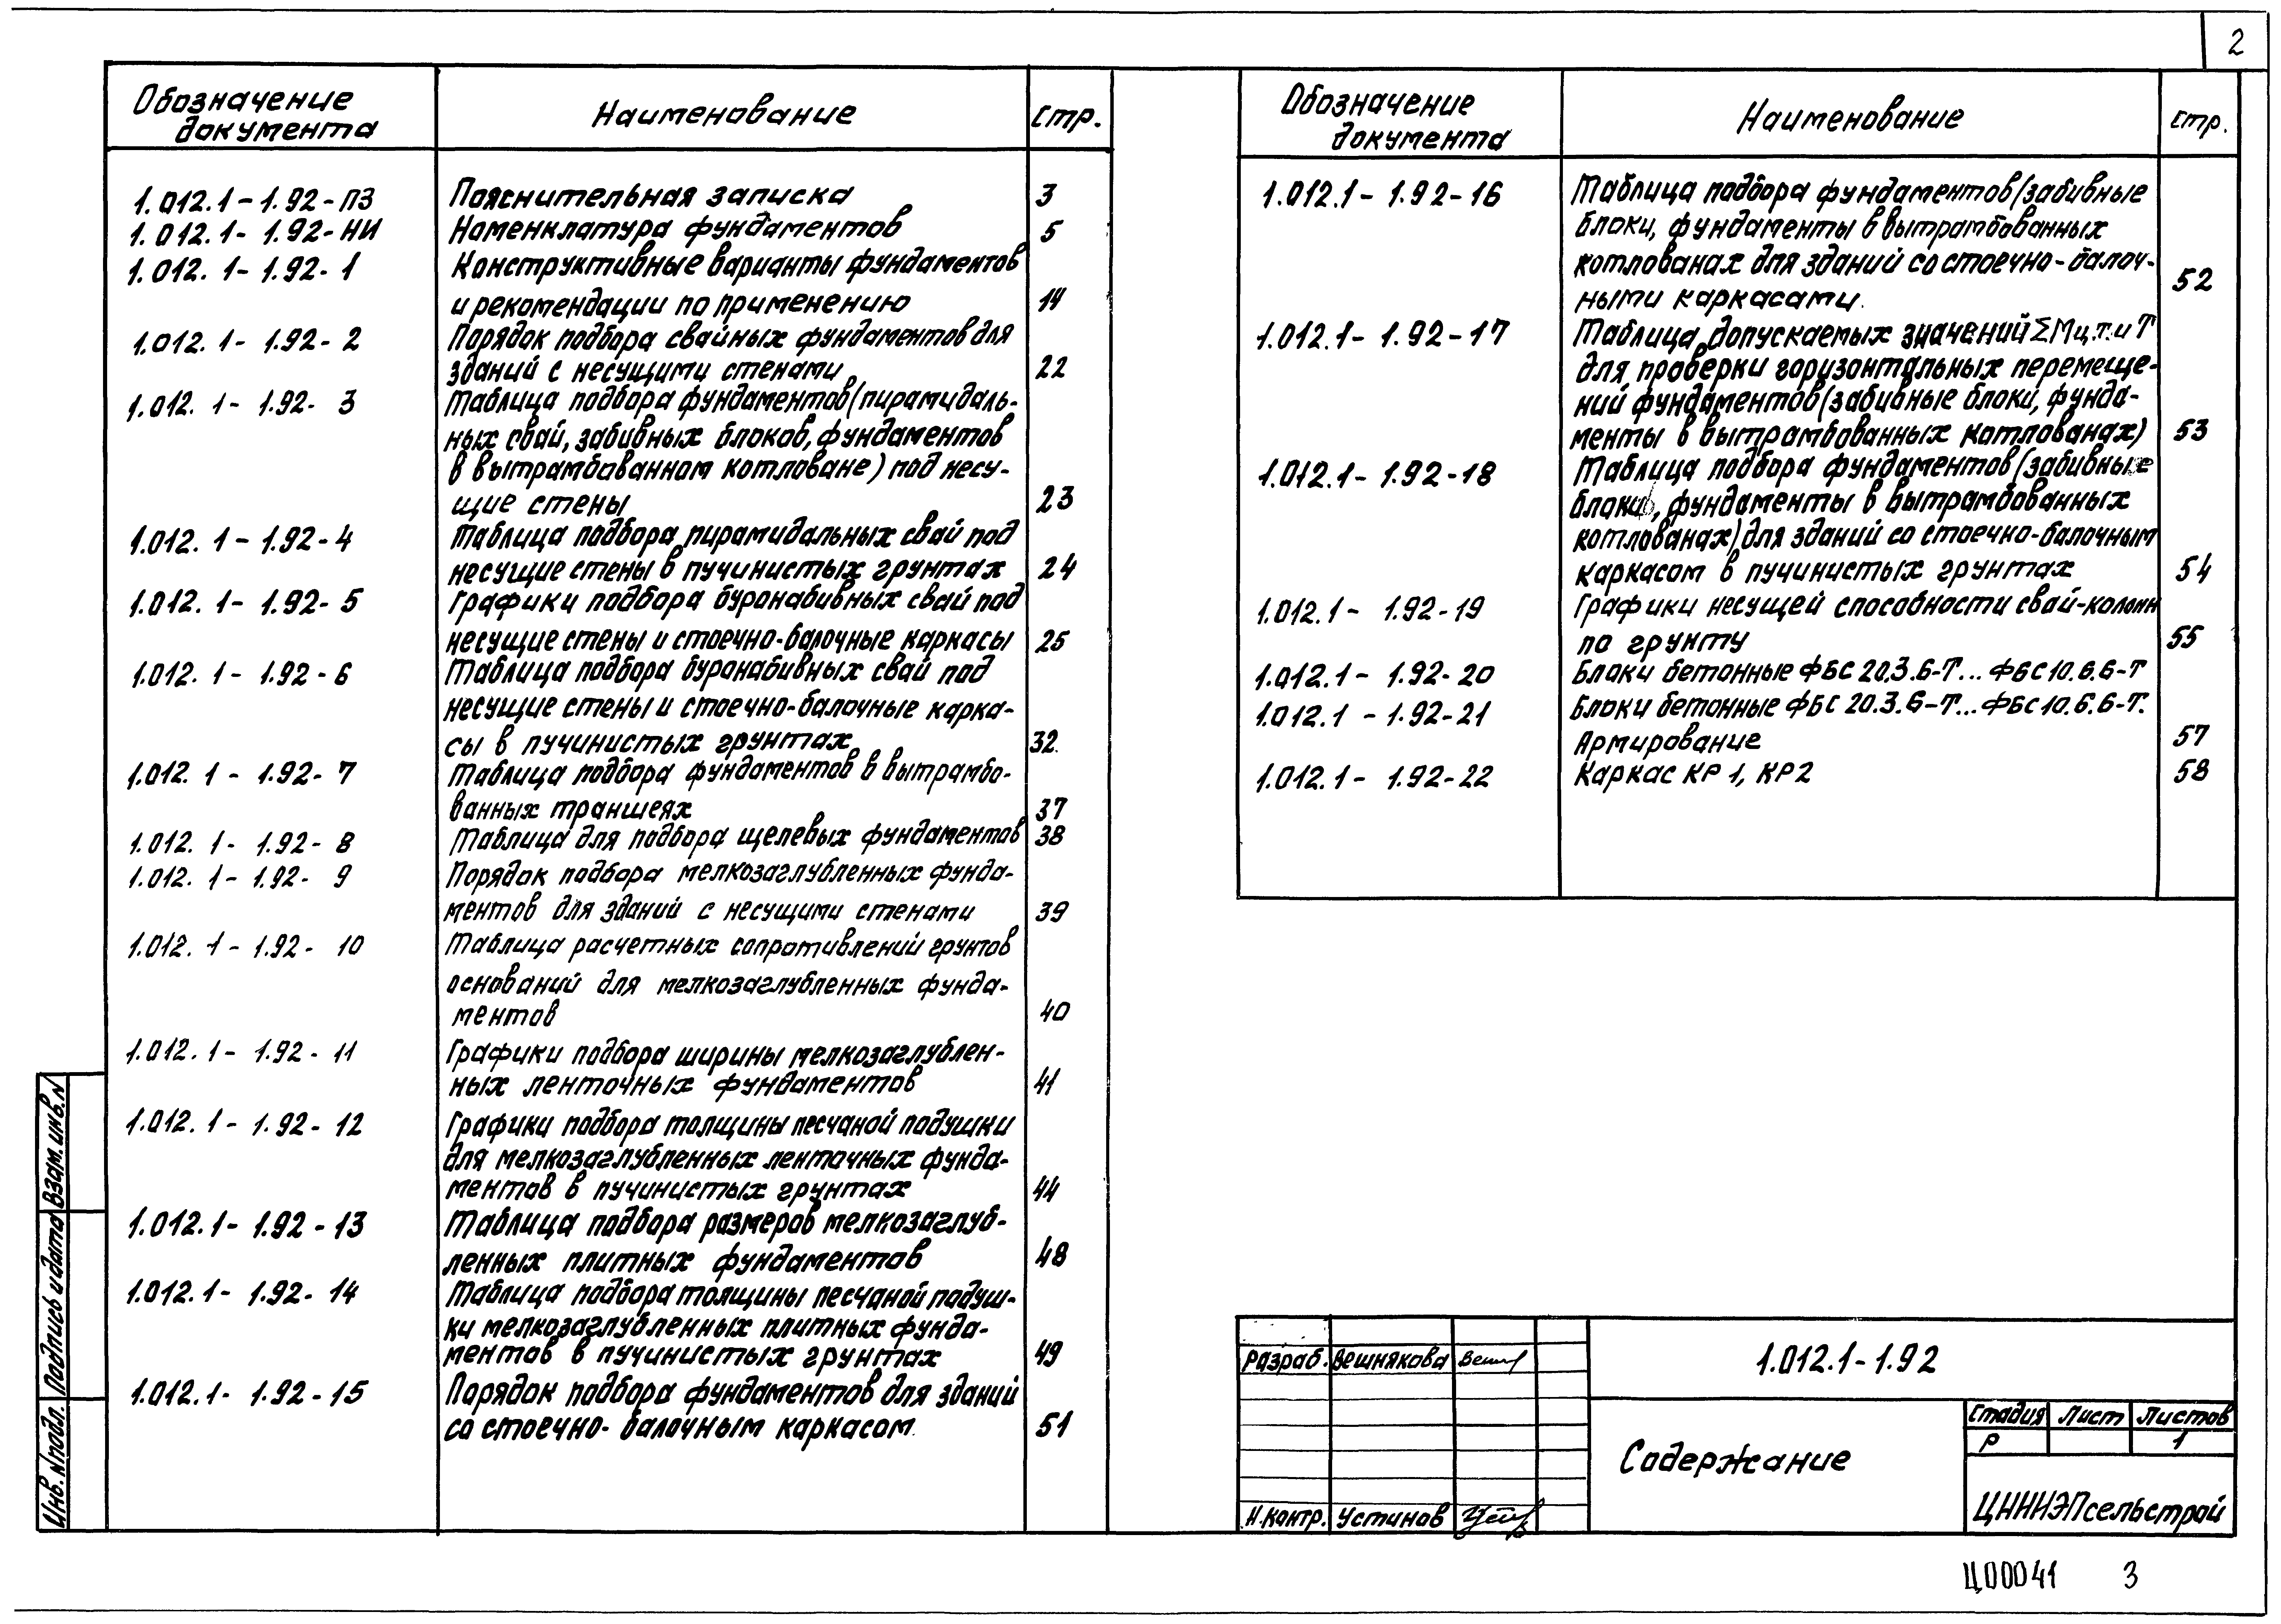 2
Обозначение документа Наименование Стр.
1.012.1-1.92-ПЗ Пояснительная записка 3
1.012.1-1.92-НИ Номенклатура фундаментов 5
1.012.1-1.92-1 Конструктивные варианты фундаментов
и рекомендации по применению 14
1.012.1-1.92-2 Порядок подбора свайных фундаментов для
зданий с несущими стенами 22
1.012.1-1.92-3 Таблица подбора фундаментов (пирамидаль-
ных свай, забивных блоков, фундаментов
в вытрамбованном котловане) под несу-
щие стены 23
1.012.1-1.92-4 Таблица подбора пирамидальных свай под
несущие стены в пучинистых грунтах 24
1.012.1-1.92-5 Графики подбора буронабивных свай под
несущие стены и стоечно-балочные каркасы 25
1.012.1-1.92-6 Таблица подбора буронабивных свай под
несущие стены и стоечно-балочные карка-
сы в пучинистых грунтах 32
1.012.1-1.92-7 Таблица подбора фундаментов в вытрамбо-
ванных траншеях 37
1.012.1-1.92-8 Таблица для подбора щелевых фундаментов 38
1.012.1-1.92-9 Порядок подбора мелкозаглубленных фунда-
ментов для зданий с несущими стенами 39
1.012.1-1.92-10 Таблица расчетных сопротивлений грунтов
оснований для мелкозаглубленных фунда-
ментов 40
1.012.1-1.92-11 Графики подбора ширины мелкозаглублен-
ных ленточных фундаментов 41
1.012.1-1.92-12 Графики подбора толщины песчаной подушки
для мелкозаглубленных ленточных фунда-
ментов в пучинистых грунтах 44
1.012.1-1.92-13 Таблица подбора размеров мелкозаглуб-
ленных плитных фундаментов 48
1.012.1-1.92-14 Таблица подбора толщины песчаной подуш-
ки мелкозаглубленных плитных фунда-
ментов в пучинистых грунтах 49
1.012.1-1.92-15 Порядок подбора фундаментов для зданий
со стоечно-балочным каркасом. 51
Обозначение документа Наименование стр.
1.012.1-1.92-16 Таблица подбора фундаментов (забивные
блоки, фундаменты в вытрамбованных
котлованах для зданий со стоечно-балоч-
ными каркасами. 52
1.012.1-1.92-17 Таблица допускаемых значений ΣМц.т. и Т
для проверки горизонтальных перемеще-
ний фундаментов (забивные блоки, фунда-
менты в вытрамбованных котлованах) 53
1.012.1-1.92-18 Таблица подбора фундаментов (забивные
блоки, фундаменты в вытрамбованных
котлованах) для зданий со стоечно-балочным
каркасом в пучинистых грунтах 54
1.012.1-1.92-19 Графики несущей способности свай-колонн
по грунту 55
1.012.1-1.92-20 Блоки бетонные ФБС 20.3.6-Т... ФБС 10.6.6-Т
1.012.1-1.92-21 Блоки бетонные ФБС 20.3.6-Т... ФБС 10.6.6-Т.
Армирование 57
1.012.1-1.92-22 Каркас КР1, КР2 58
Инв. N подл. Подпись и дата Взам. инв. N
Разраб. Вешнякова Вешн
Н.контр. Устинов Устин
1.012.1-1.92
Содержание
Стадия Лист Листов
Р 1
ЦНИИЭПсельстрой
Ц00041 3